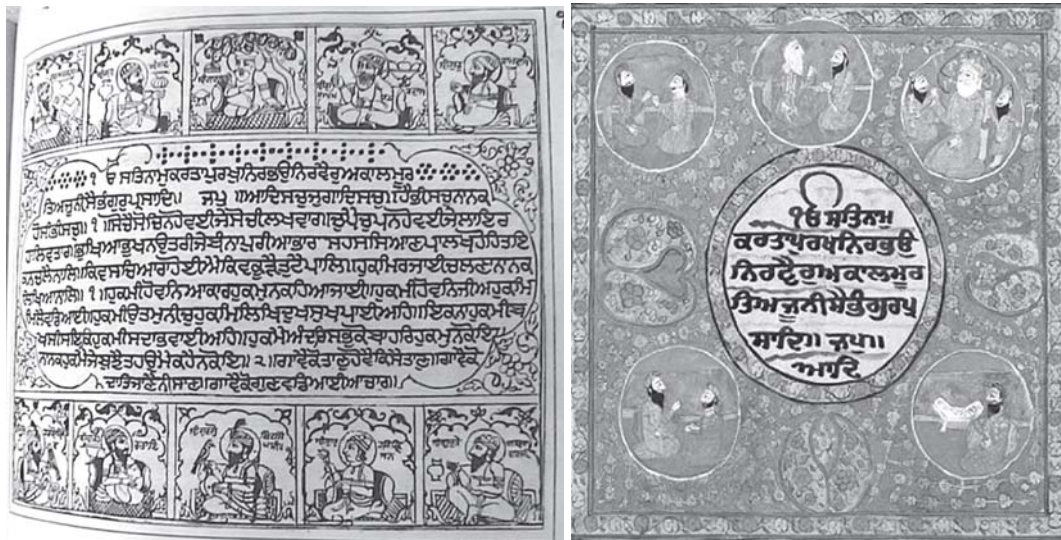 ੧ਓ ਸਤਿਨਾਮੁਕਰਤਾਪੁਰਖੁਨਿਰਭਉਨਿਰਵੈਰੁਅਕਾਲਮੂਰ
ਤਿਅਜੂਨੀਸੈਭੰਗੁਰਪ੍ਰਸਾਦਿ॥ ਜਪੁ ॥ਆਦਿਸਚੁਜੁਗਾਦਿਸਚੁ॥ਹੈਭੀਸਚੁਨਾਨਕ
ਹੋਸੀਭੀਸਚੁ॥ ੧ ॥ਸੋਚੈਸੋਚਿਨਹੋਵਈਜੇਸੋਚੀਲਖਵਾਰ॥ਚੁਪੈਚੁਪਨਹੋਵਈਜੇਲਾਇਰ
ਹਾਲਿਵਤਾਰ॥ਭੁਖਿਆਭੁਖਨਉਤਰੀਜੇਬੰਨਾਪੁਰੀਆਭਾਰ॥ਸਹਸਸਿਆਣਪਾਲਖਹੋਹਿਤਇ
ਕਨਚਲੈਨਾਲਿ॥ਕਿਵਸਚਿਆਰਾਹੋਈਐਕਿਵਕੂੜੈਤੁਟੈਪਾਲਿ॥ਹੁਕਮਿਰਜਾਈਚਲਣਾਨਾਨਕ
ਲਿਖਿਆਨਾਲਿ॥ ੧ ॥ਹੁਕਮੀਹੋਵਨਿਆਕਾਰਹੁਕਮੁਨਕਹਿਆਜਾਈ॥ਹੁਕਮੀਹੋਵਨਿਜੀਅਹੁਕਮਿ
ਮਿਲੈਵਡਿਆਈ॥ਹੁਕਮੀਉਤਮੁਨੀਚੁਹੁਕਮਿਲਿਖਿਦੁਖਸੁਖਪਾਈਅਹਿ॥ਇਕਨਾਹੁਕਮੀਬ
ਖਸੀਸਇਕਿਹੁਕਮੀਸਦਾਭਵਾਈਅਹਿ॥ਹੁਕਮੈਅੰਦਰਿਸਭੁਕੋਬਾਹਰਿਹੁਕਮੁਨਕੋਇ॥
ਨਾਨਕਹੁਕਮੈਜੇਬੁਝੈਤਹਉਮੈਕਹੈਨਕੋਇ॥ ੨॥ਗਾਵੈਕੋਤਾਣੁਹੋਵੈਕਿਸੈਤਾਣੁ॥ਗਾਵੈਕੋ
ਦਾਤਿਜਾਣੈਨੀਸਾਣੁ॥ਗਾਵੈਕੋਗੁਣਵਡਿਆਈਆਚਾਰ॥
੧ਓ ਸਤਿਨਾਮ
ਕਰਤਾਪੁਰਖਨਿਰਭਉ
ਨਿਰਵੈਰੁਅਕਾਲਮੂਰ
ਤਿਅਜੂਨੀਸੈਭੰਗੁਰਪ੍ਰ
ਸਾਦਿ॥ ਜਪੁ॥
ਆਦਿ